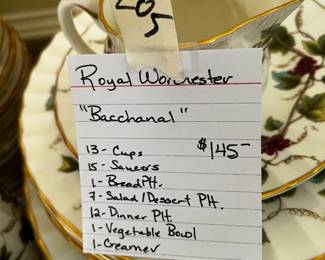 205
Royal Worchester
"Bacchanal"
13 - Cups $145-
15 - Saucers
1 - Bread Plt.
7 - Salad / Dessert Plt.
12 - Dinner Plt.
1 - Vegetable Bowl
1 - Creamer